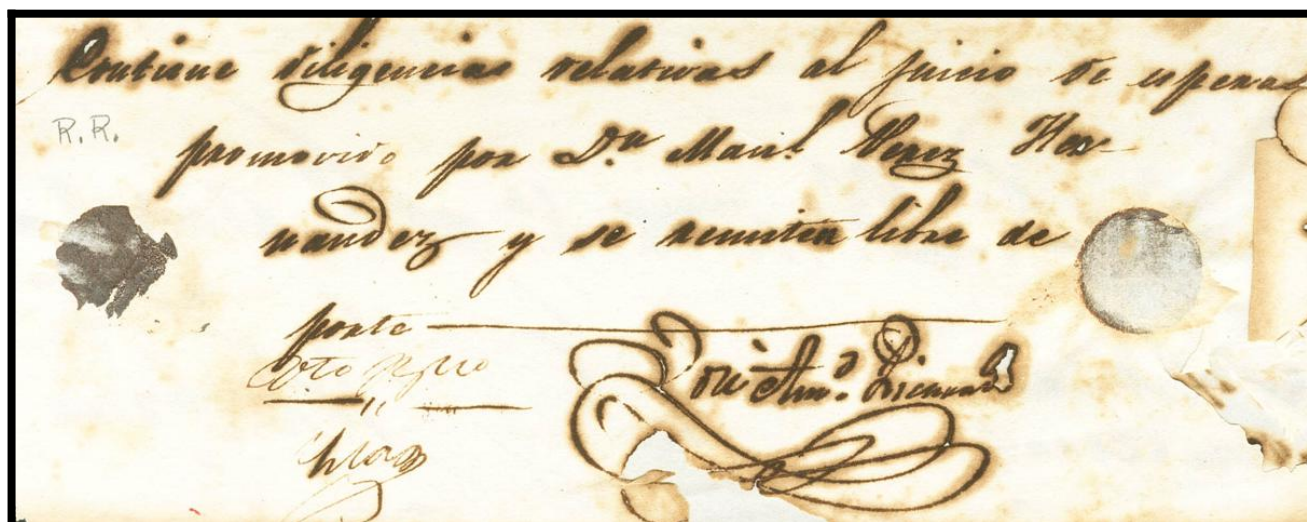 Contiene diligencias relativas al juicio de esperas
R. R.
promovido por Dn. Manl. Perez Her-
nandez y se remiten libre de
porte
José Anto.